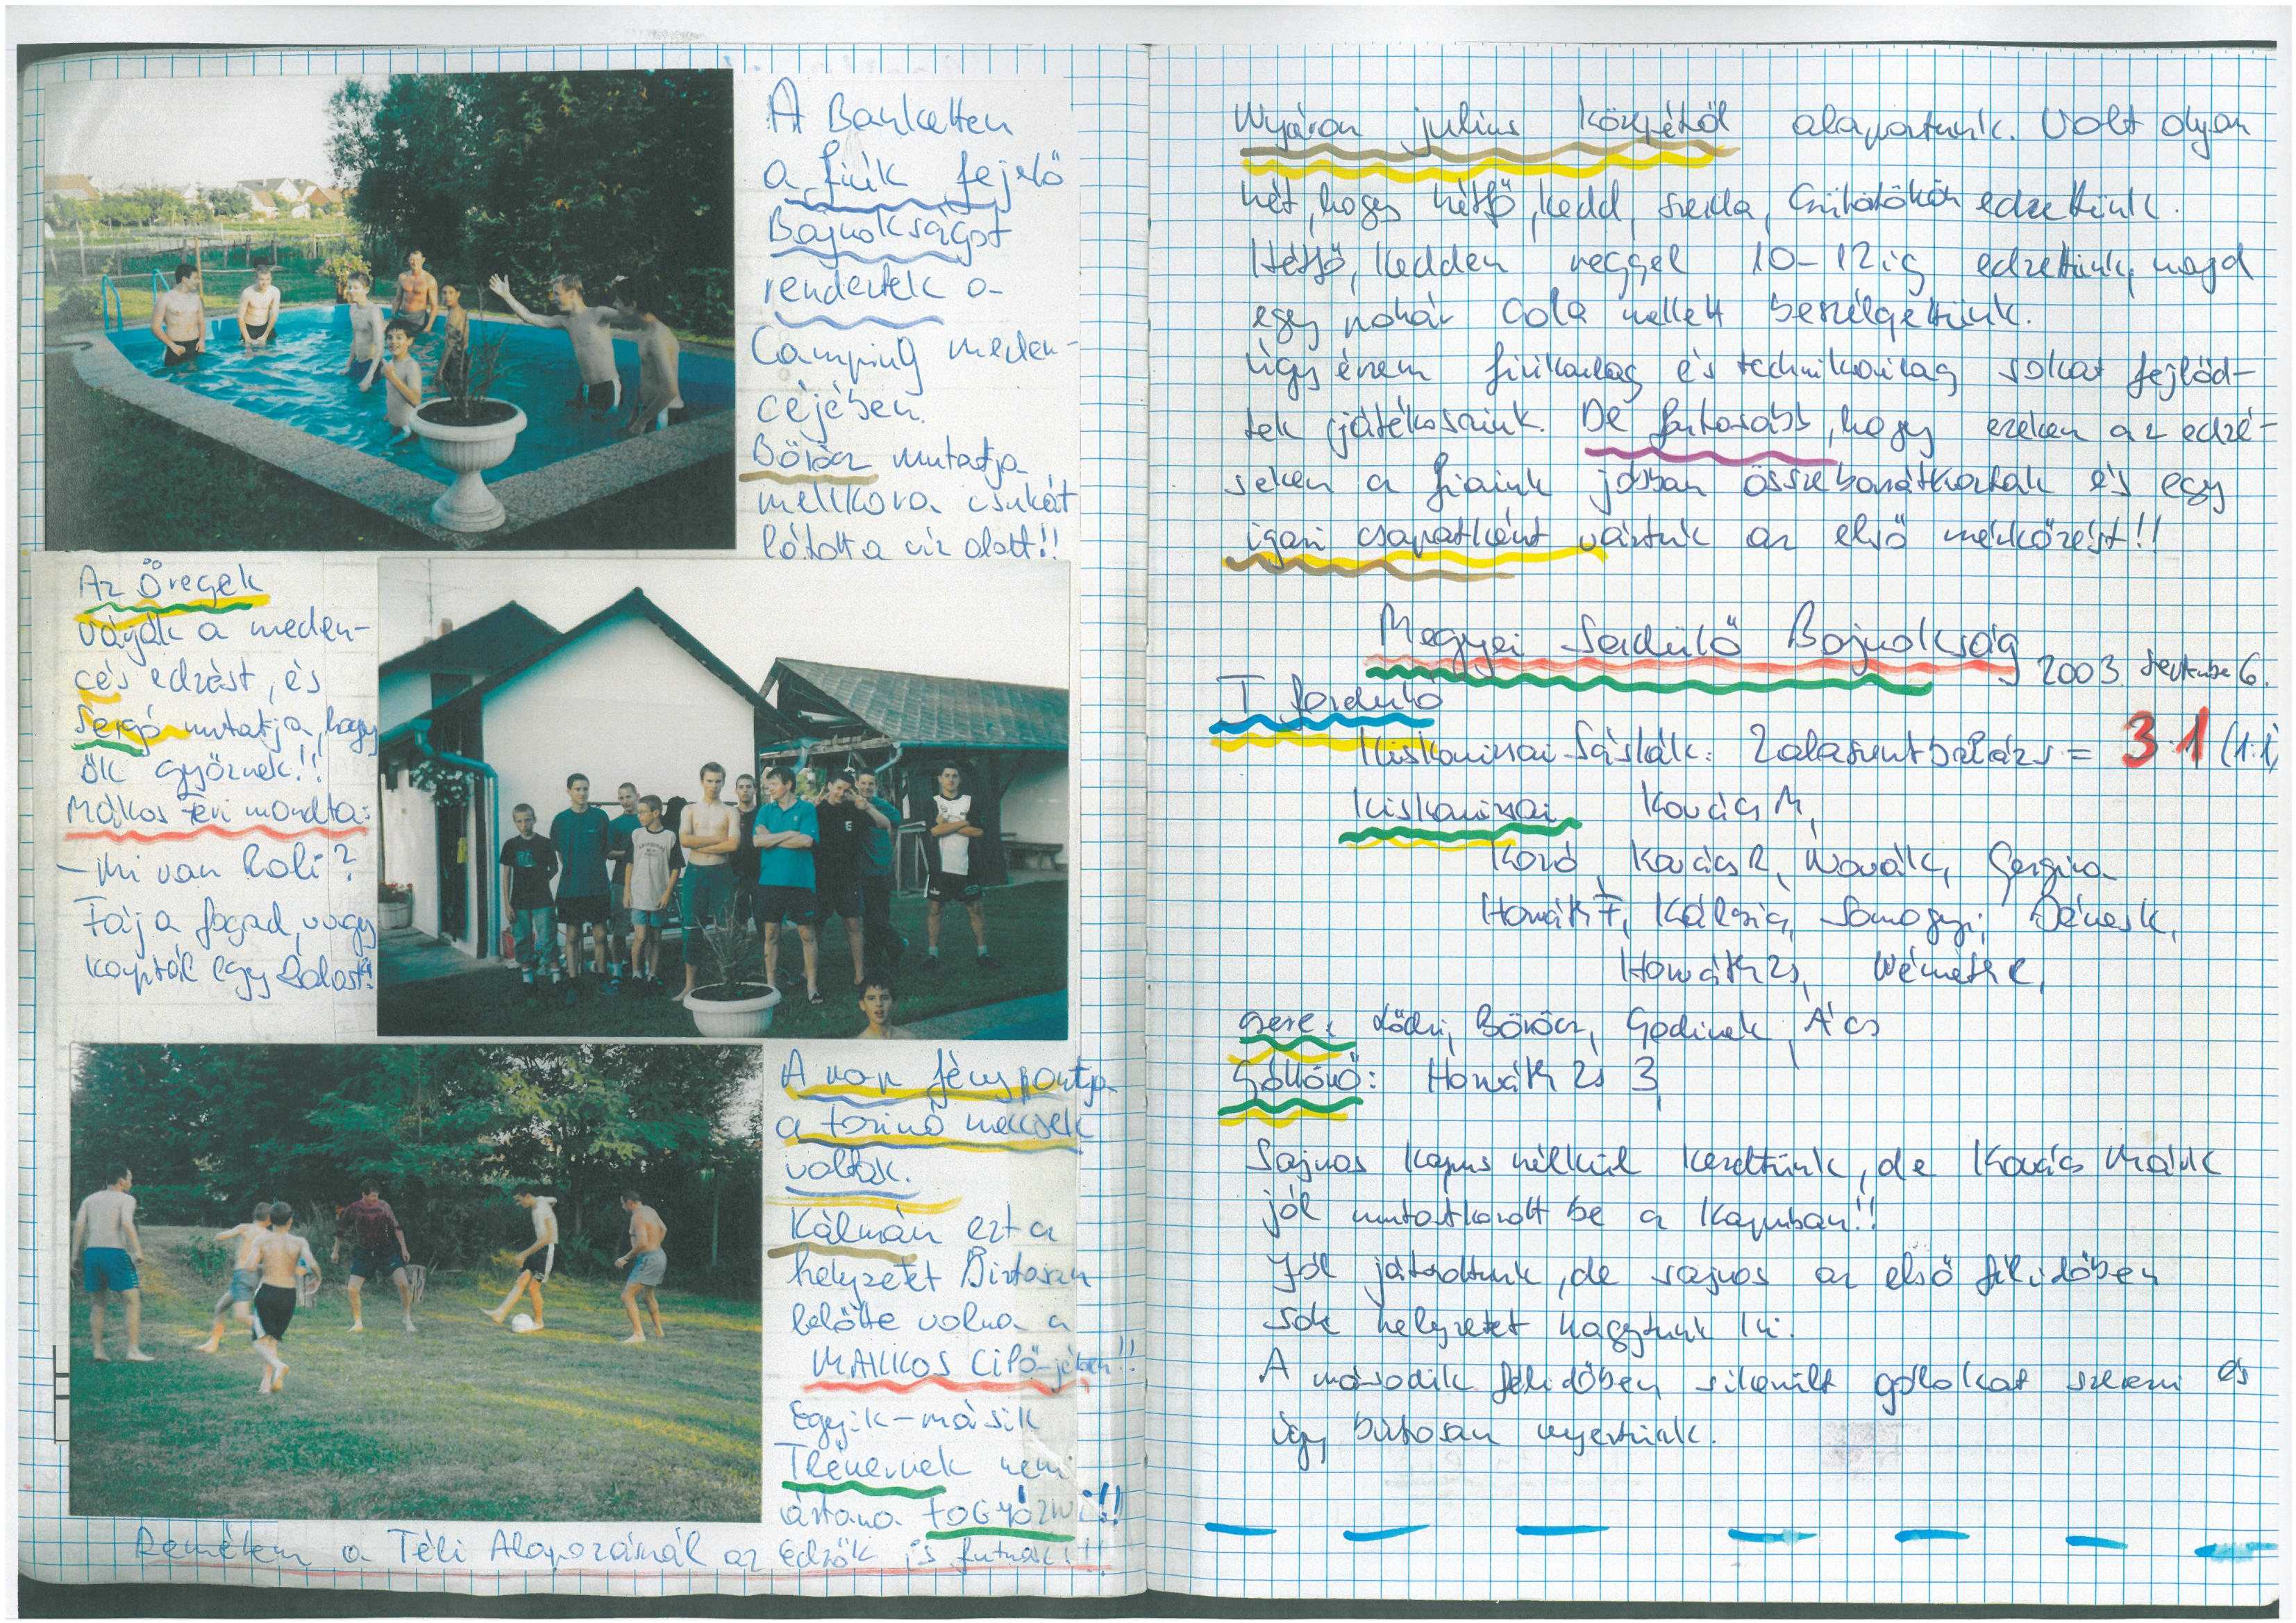 A Banketten
a fiúk fejelő
Bajnokságot
rendeztek a
Camping meden-
céjében.
Böröcz mutatja
mekkora csukát
látott a víz alatt!!
Az Öregek
várják a meden-
cés edzést, és
Gergő mutatja, hogy
ők győznek!!
Mákos Feri mondta:
- Mi van Roli?
Fáj a fogad, vagy
kaptál egy
A nap fénypontja
a focinó meccsek
voltak.
Kálmán ezt a
helyzetet Biztosan
belőtte volna a
MAKKOS CIPŐ-jében!!
Egyik-másik
Trénernek nem
ártana FOGYÓZNI!!
Remélem a Téli Alapozásnál az edzők is futnak!!!
Nyáron július közepétől alapoztunk. Volt olyan
hét, hogy hétfő, kedd, szerda, Csütörtökön edzettünk.
Hétfő, kedden reggel 10-12 ig edzettünk, majd
egy pohár Cola mellett beszélgettünk.
Úgy érzem fizikailag és technikailag sokat fejlőd-
tek játékosaink. De fontosabb, hogy ezeken az edzé-
seken a fiaink jobban összebarátkoztak és egy
igazi csapatként vártuk az első mérkőzést!!
Megyei Serdülő Bajnokság 2003. szeptember 6.
I forduló
Kiskanizsai Sáskák : Zalaszentbalázs = 3:1 (1:1)
Kiskanizsai Kovács M,
Kovács R, Novák, Gergina
Horváth F, Kálovics, Somogyi, Dénes K,
Horváth Zs, Németh R,
csere: Lődri, Böröcz, Godinek, Ács
Góllövő: Horváth Zs 3,
Sajnos kapus nélkül kezdtünk, de Kovács Márk
jól mutatkozott be a kapuban!!
Jól játszottunk, de sajnos az első félidőben
sok helyzetet hagytunk ki.
A második félidőben sikerült gólokat szerezni és
így biztosan nyertünk.